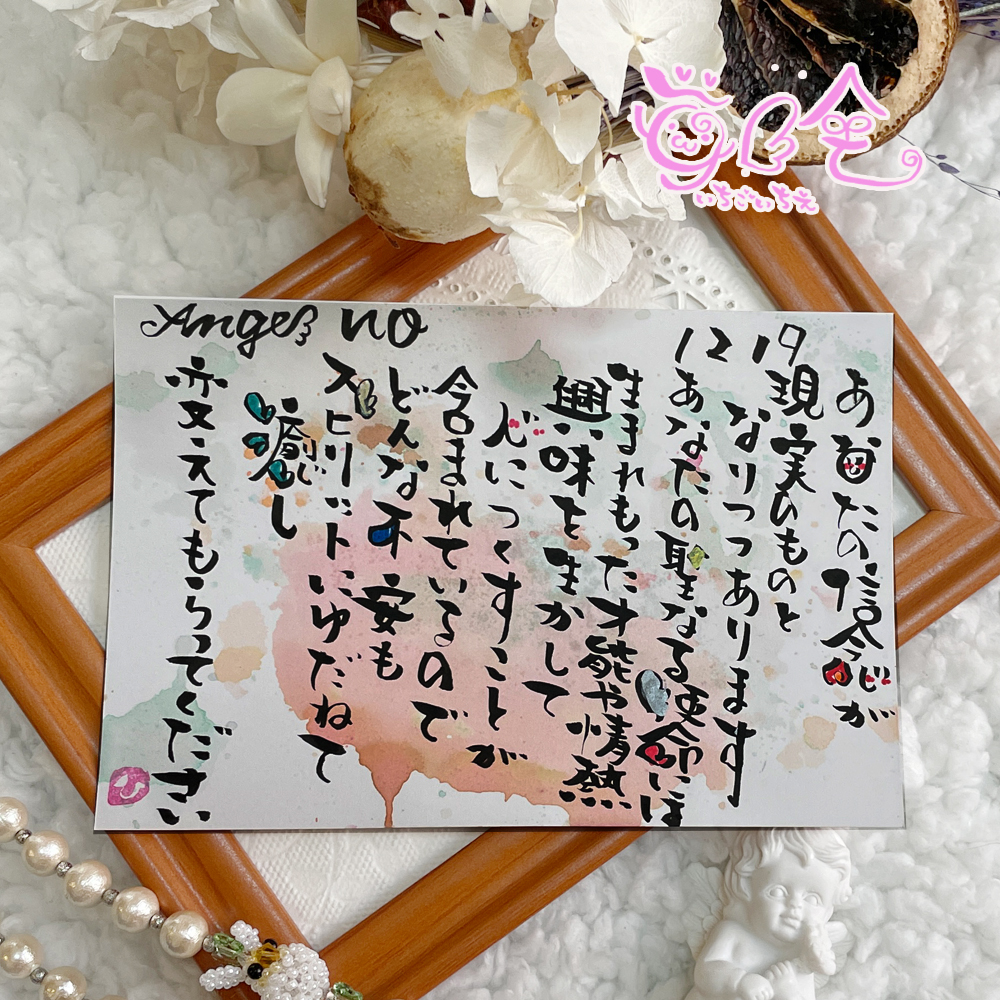 Angel no 1219
あなたの信念が
現実のものと
なりつつあります
あなたの聖なる使命には
生まれもった才能や情熱
興味を生かして
心につくすことが
含まれているので
どんな不安も
スピリットにゆだねて
癒し
変えてもらってください
いちごいちえ